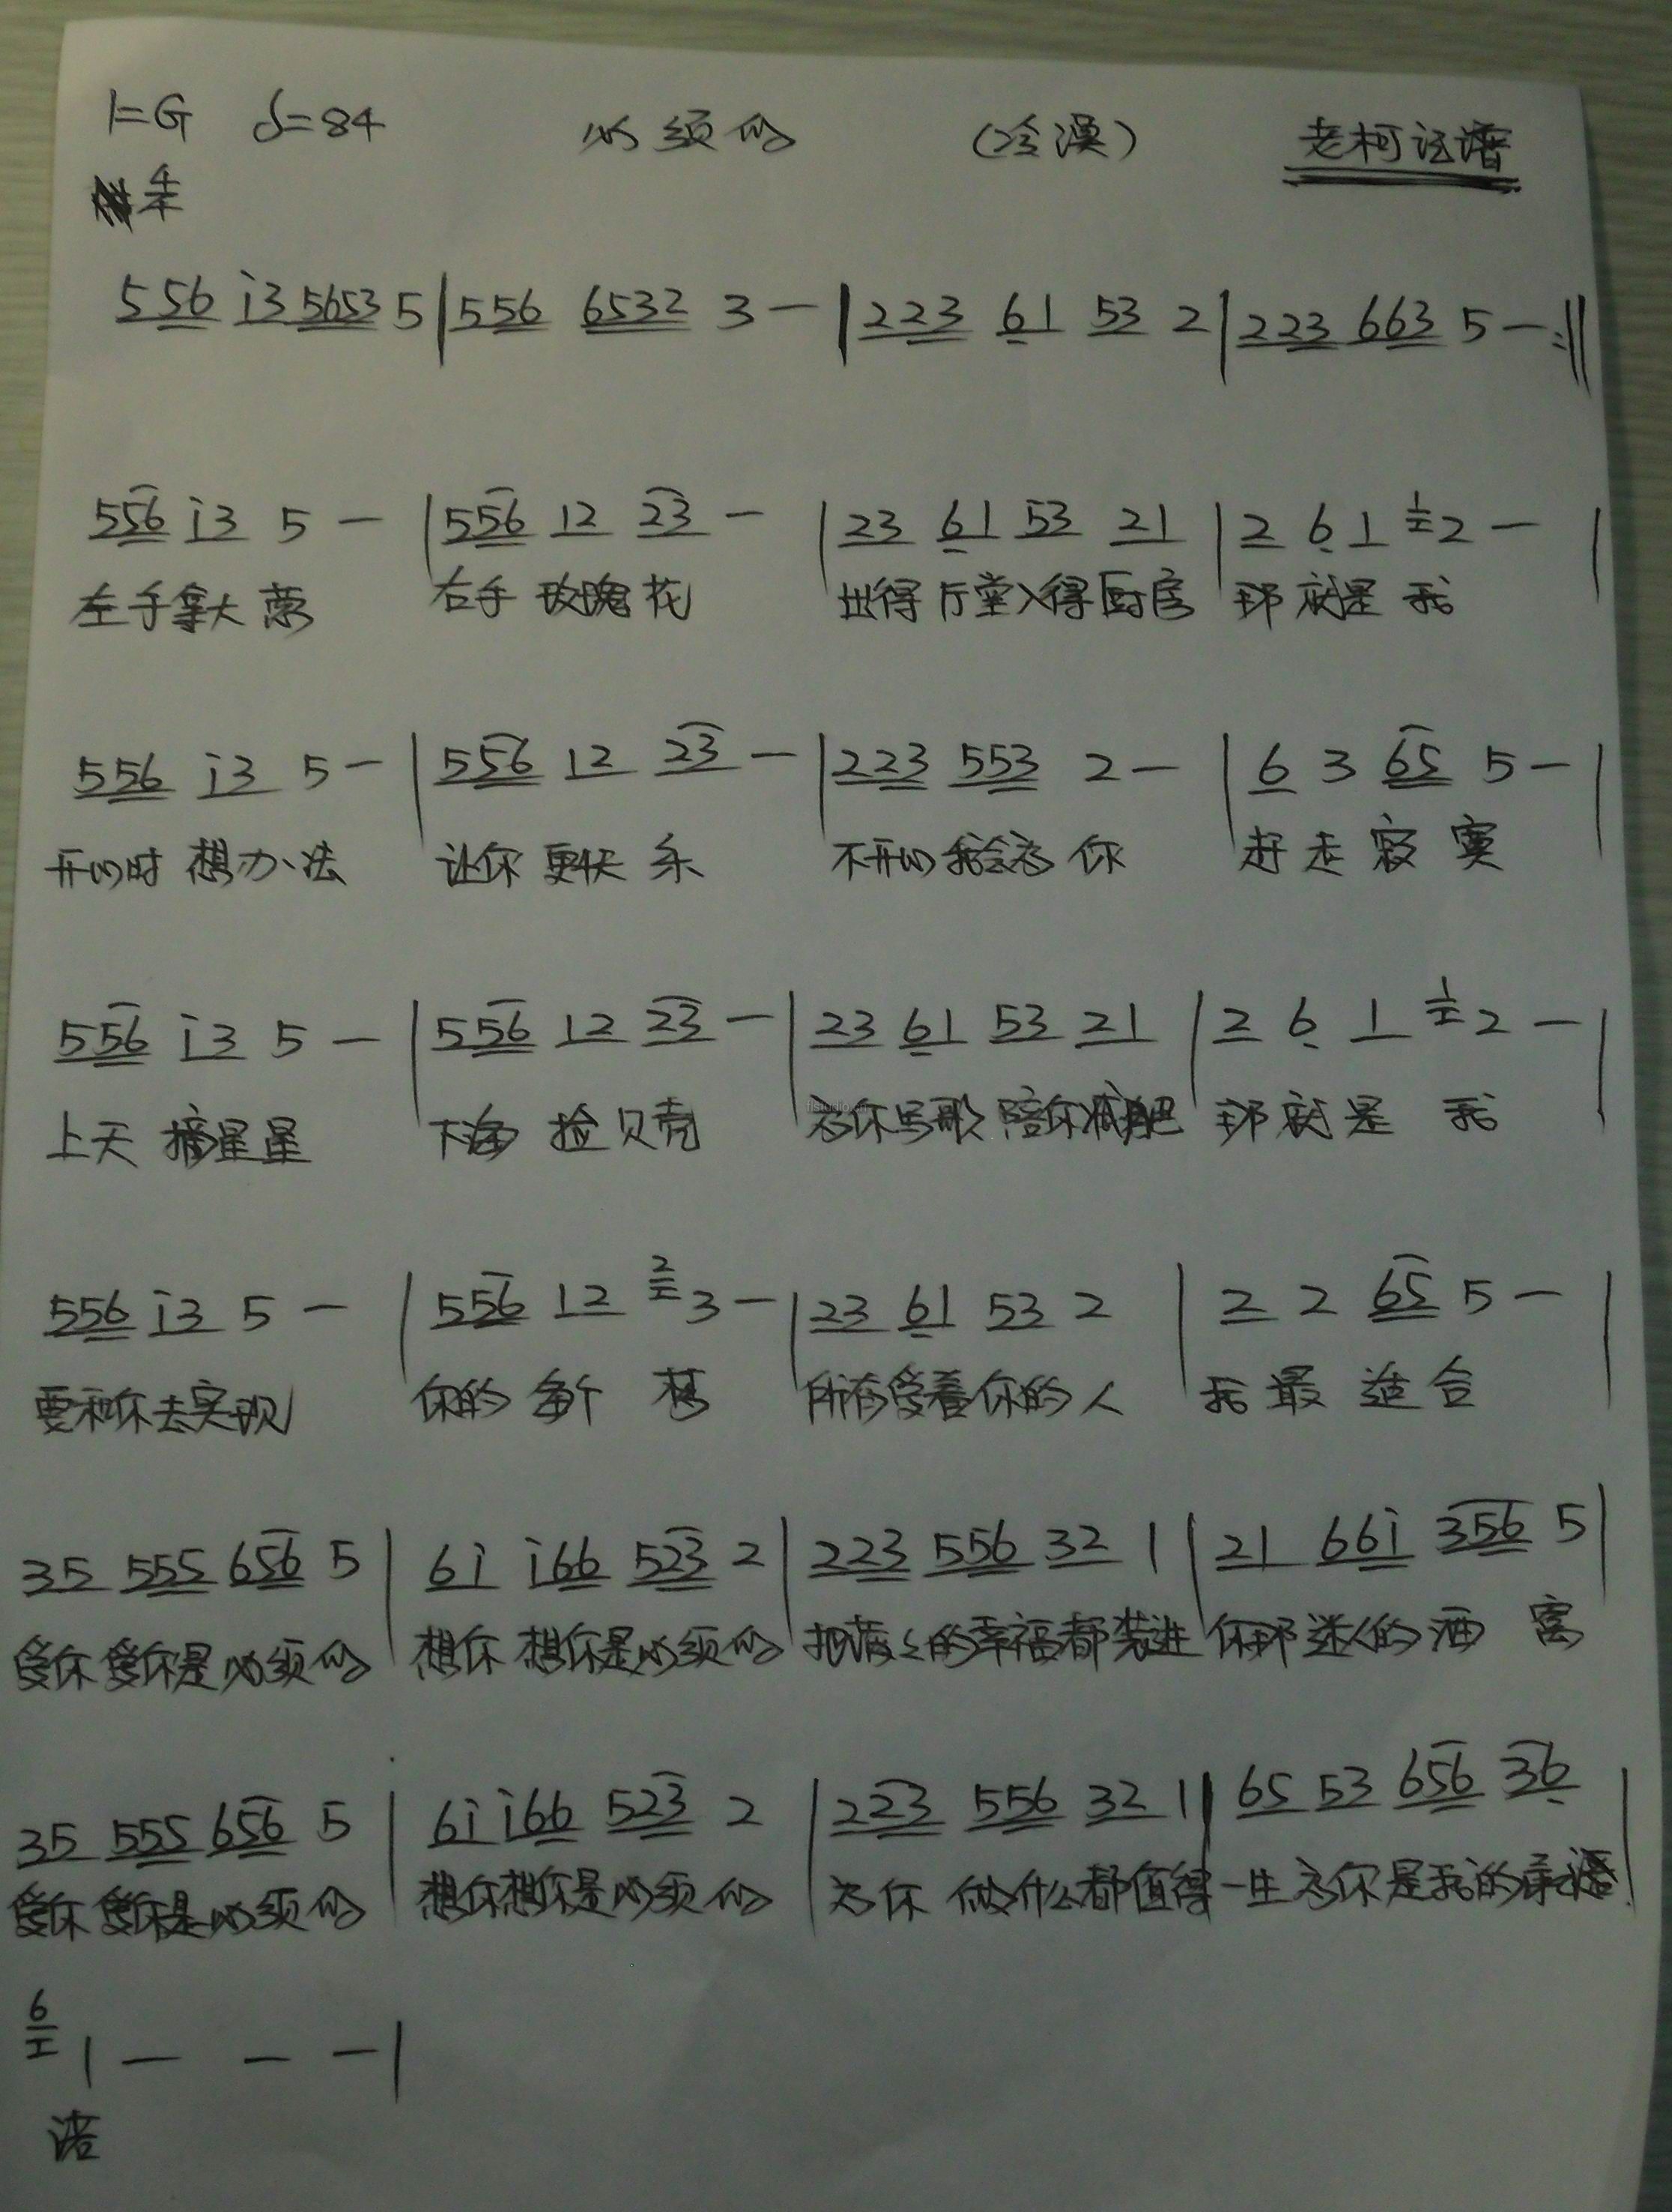 1=G ♩=84 必须的 (冷漠) 老柯记谱
4/4
5 56 i3 5653 5 | 5 56 6532 3 — | 2 23 61 53 2 | 2 23 6 63 5 — :||
5 56 i3 5 — | 5 56 12 23 — | 23 61 53 21 | 2 6 1 1 2 — |
左手拿大葱 右手玫瑰花 出得厅堂入得厨房 那就是我
5 56 i3 5 — | 5 56 12 23 — | 2 23 5 53 2 — | 6 3 65 5 — |
开心时想办法 让你更快乐 不开心我会为你 赶走寂寞
5 56 i3 5 — | 5 56 12 23 — | 23 61 53 21 | 2 6 1 1 2 — |
上天摘星星 下海捡贝壳 为你写歌陪你减肥 那就是我
5 56 i3 5 — | 5 56 12 2 3 — | 23 61 53 2 | 2 2 65 5 — |
要和你去实现 你的每个梦 所有爱着你的人 我最适合
35 5 55 6 56 5 | 6i i 66 5 23 2 | 2 23 5 56 32 1 | 21 6 6i 3 56 5 |
爱你爱你是必须的 想你想你是必须的 把满满的幸福都装进 你那迷人的酒窝
35 5 55 6 56 5 | 6i i 66 5 23 2 | 2 23 5 56 32 1 | 65 53 6 56 36 |
爱你爱你是必须的 想你想你是必须的 为你做什么都值得 一生为你是我的承
6 1 — — — |
诺